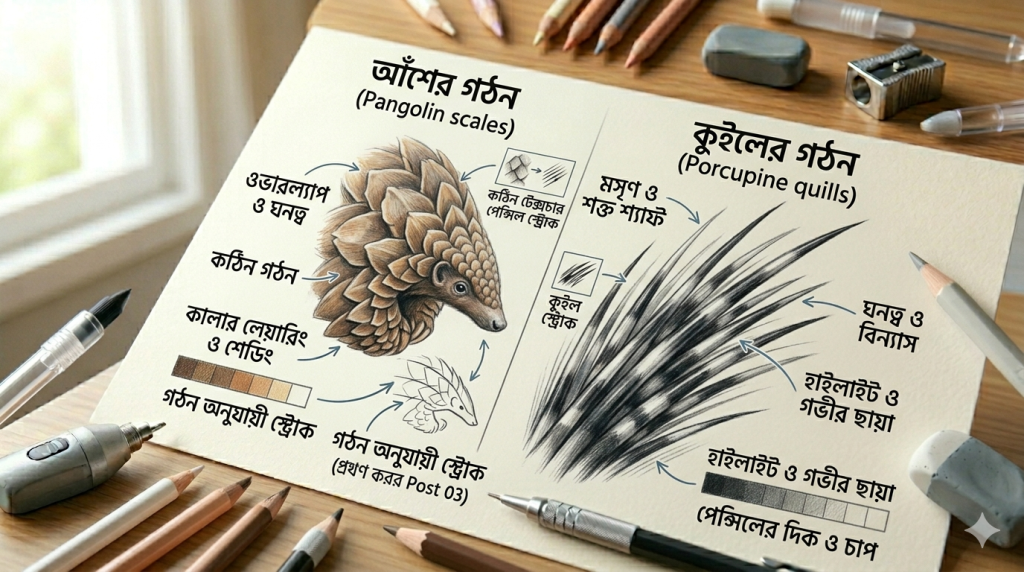 আঁশের গঠন
(Pangolin scales)
ওভারল্যাপ
ও ঘনত্ব
কঠিন টেক্সচার
পেন্সিল স্ট্রোক
কঠিন গঠন
কালার লেয়ারিং
ও শেডিং
গঠন অনুযায়ী স্ট্রোক
গঠন অনুযায়ী স্ট্রোক
(প্রখণ করর Post 03)
কুইলের গঠন
(Porcupine quills)
মসৃণ ও
শক্ত শ্যাফ্ট
কুইল
স্ট্রোক
ঘনত্ব ও
বিন্যাস
হাইলাইট ও
গভীর ছায়া
হাইলাইট ও গভীর ছায়া
পেন্সিলের দিক ও চাপ